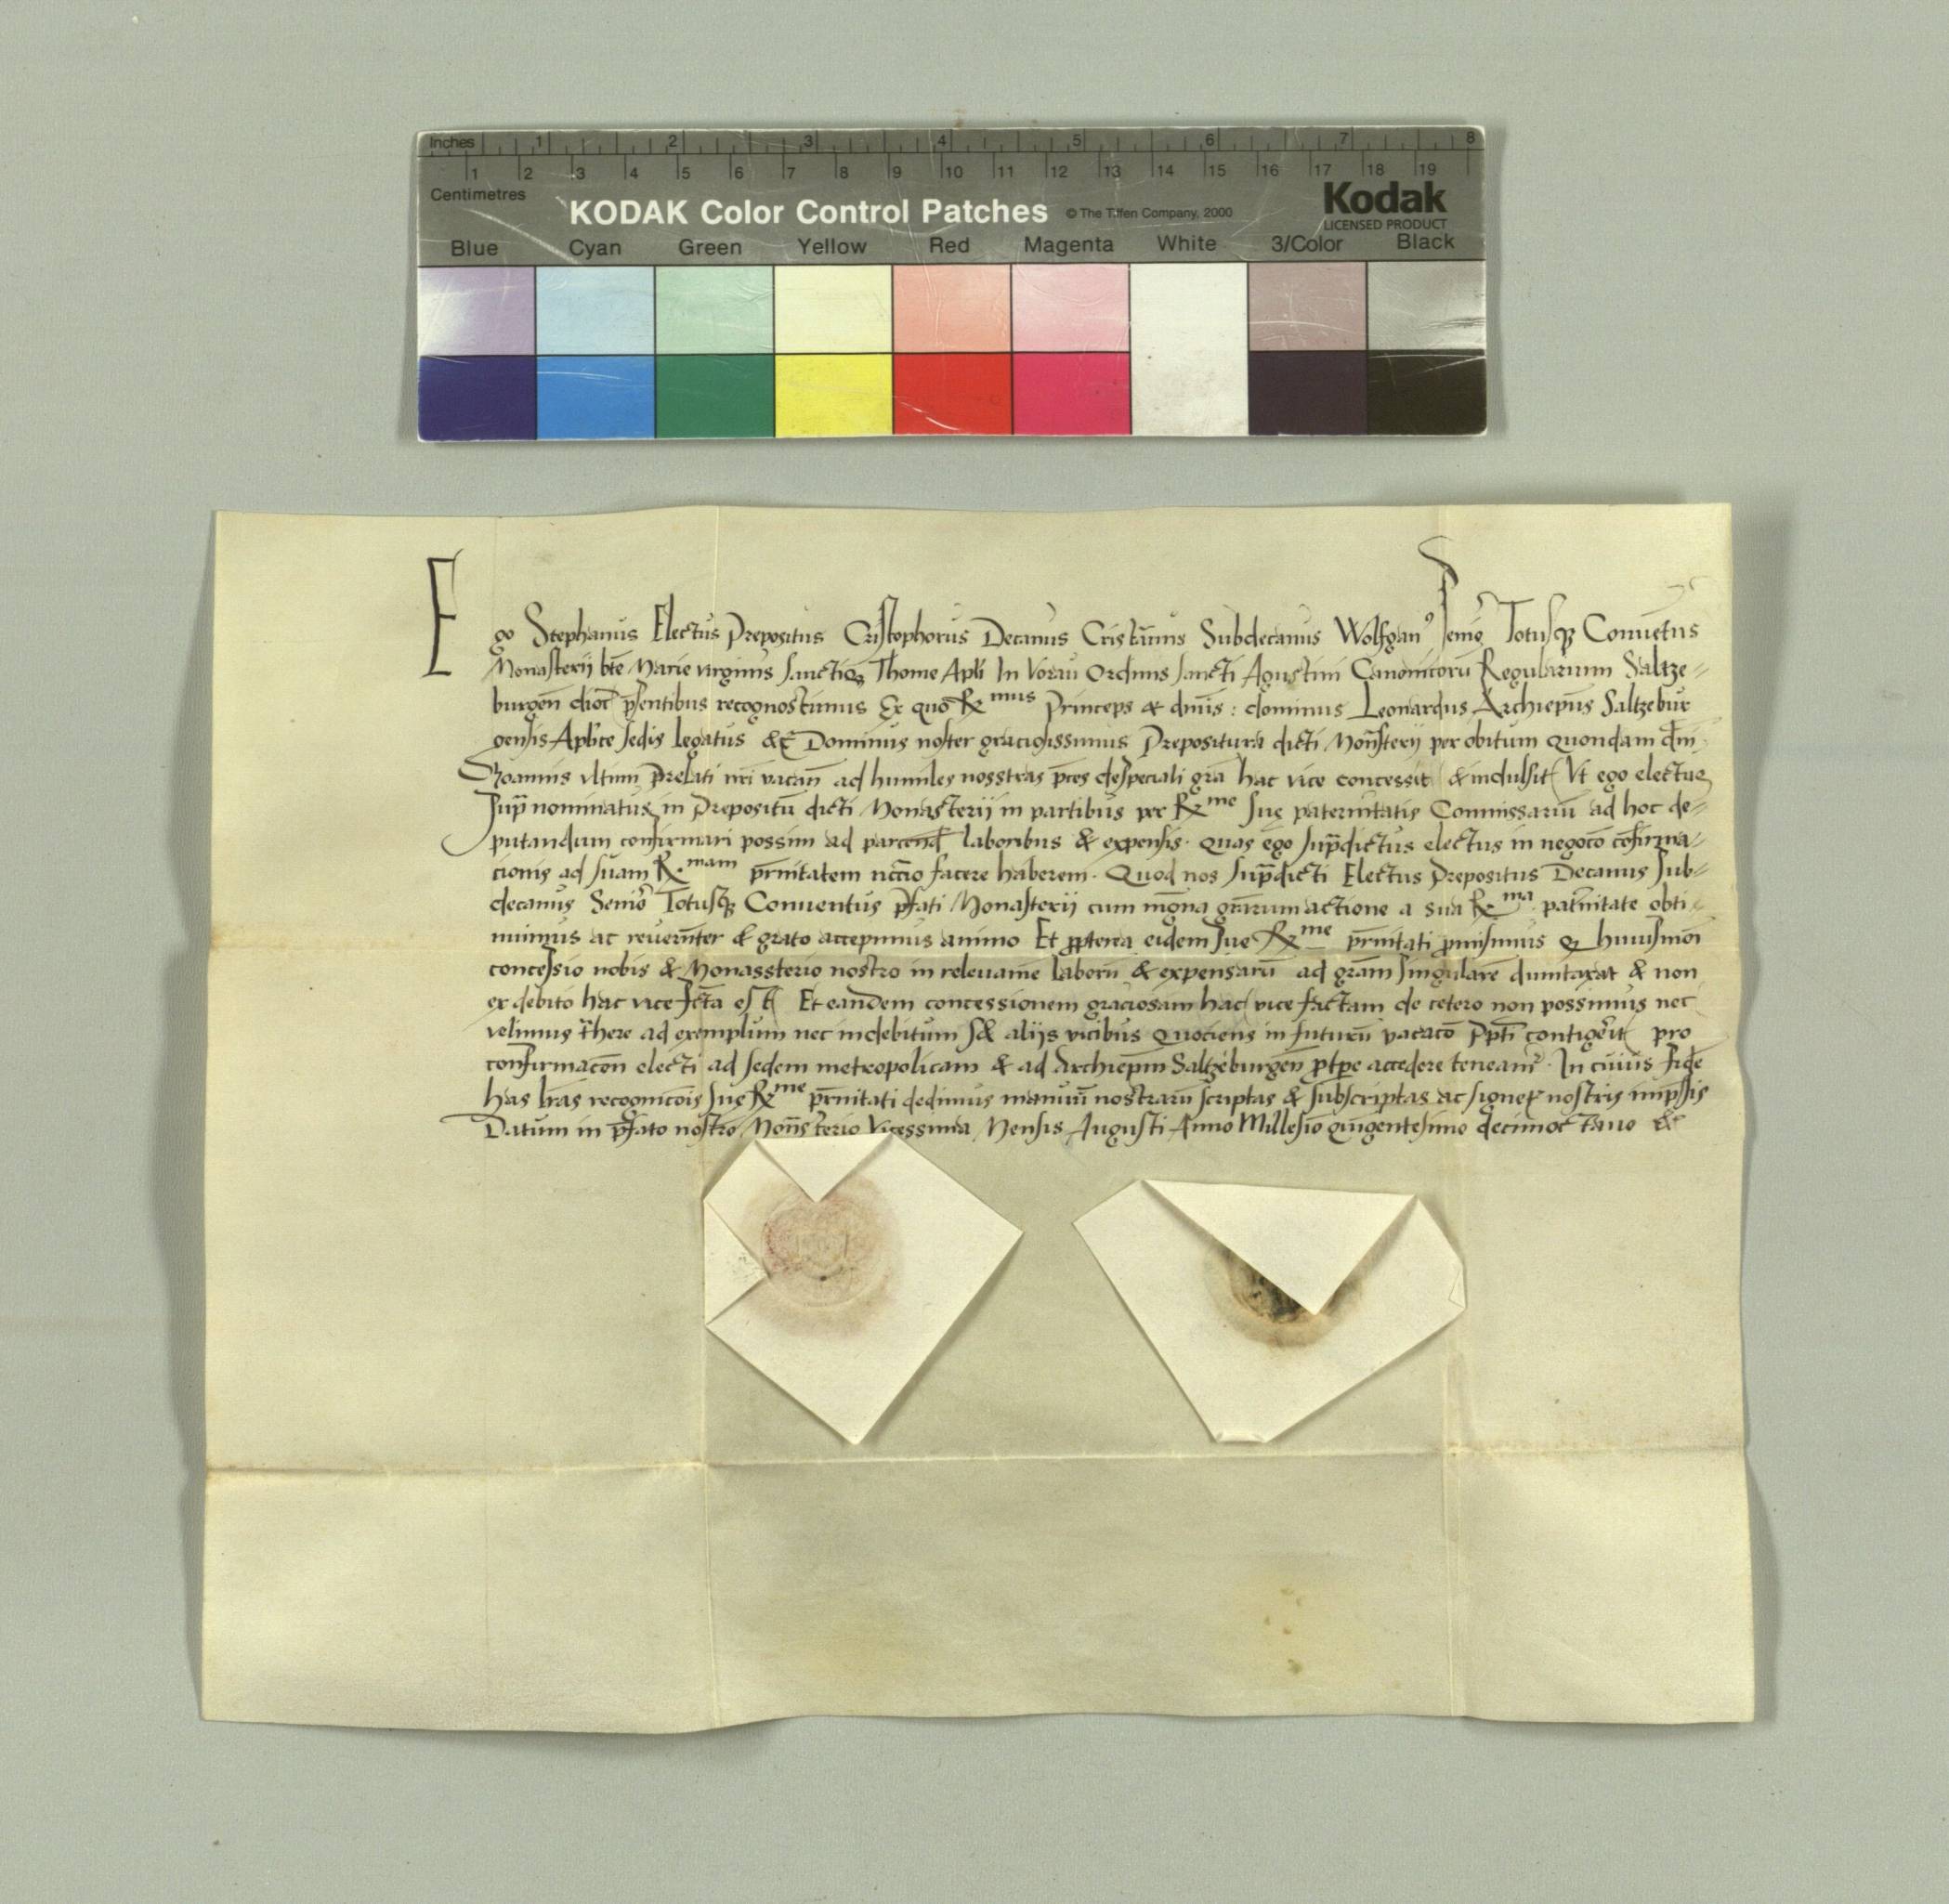 Inches 1 2 3 4 5 6 7 8
1 2 3 4 5 6 7 8 9 10 11 12 13 14 15 16 17 18 19
Centimetres
KODAK Color Control Patches © The Tiffen Company, 2000 Kodak
LICENSED PRODUCT
Blue Cyan Green Yellow Red Magenta White 3/Color Black
Ego Stephanus Electus Prepositus Cristophorus Decanus Cristannus Subdecanus Wolfgang9 senio Totusqz Conuētus
Monasterij btē Marie virginis sanctiqz Thome Apli In Voraū Ordinis sancti Agustini Canonicorū Regularium Saltze-
burgeñ dioc̄ p̄sentibus recognoscimus Ex quo Rmus Princeps & dnūs: dominus Leonardus Archiepūs Saltzebur
gensis Aplice sedis legatus &c̄ Dominus noster graciosissimus Prepositura dicti Mon̄sterij per obitum quondam dn̄i
Ioannis vltimi prelati nr̄i vacan̄ ad humiles nosstras p̄ces de speciali grā hac vice concessit & indulsit Vt ego electus
sup̄nominatus in Prepositū dicti Monasterij in partibus per Rme sue paternitatis Commissariū ad hoc de-
putandum confirmari possim ad parcend̄ laboribus & expensis. quas ego sup̄dictus electus in negocō cōfirma-
cionis ad suam R.mam pr̄nitatem nc̄cio facere haberem. Quod nos sup̄dicti Electus Prepositus Decanus Sub-
decanus Senio Totusqz Conuentus p̄fati Monasterij cum mḡna grārum actione a sua Rma patr̄nitate obti-
nuimus ac reuer̄nter & grato accepimus animo Et ꝓpterea eidem sue Rme pr̄nitati ꝓmisimus qz huiusmōi
concessio nobis & Monassterio nostro in releuamē laborū & expensarū ad grām singularē dumtaxat & non
ex debito hac vice fc̄ta est Et eandem concessionem graciosam hac vice factam de cetero non possimus nec
velimus tr̄here ad exemplum nec indebitum sꝫ alijs vicibus quociens in futurū vacacō Pp̄ti contigerit pro
confirmacōn electi ad sedem metropolicam & ad Archiepm̄ Saltzeburgen̄ accedere teneam̄. In cuius fidē
has lrās recognicōis sue Rme pr̄nitati dedimus manuū nostrarū scriptas & subscriptas ac signeꝝ nostris imp̄ssis
Datum in p̄fato nostro Mon̄sterio Vicessima Mensis Augusti Anno Millesīo quīgentesimo decimoctauo &c